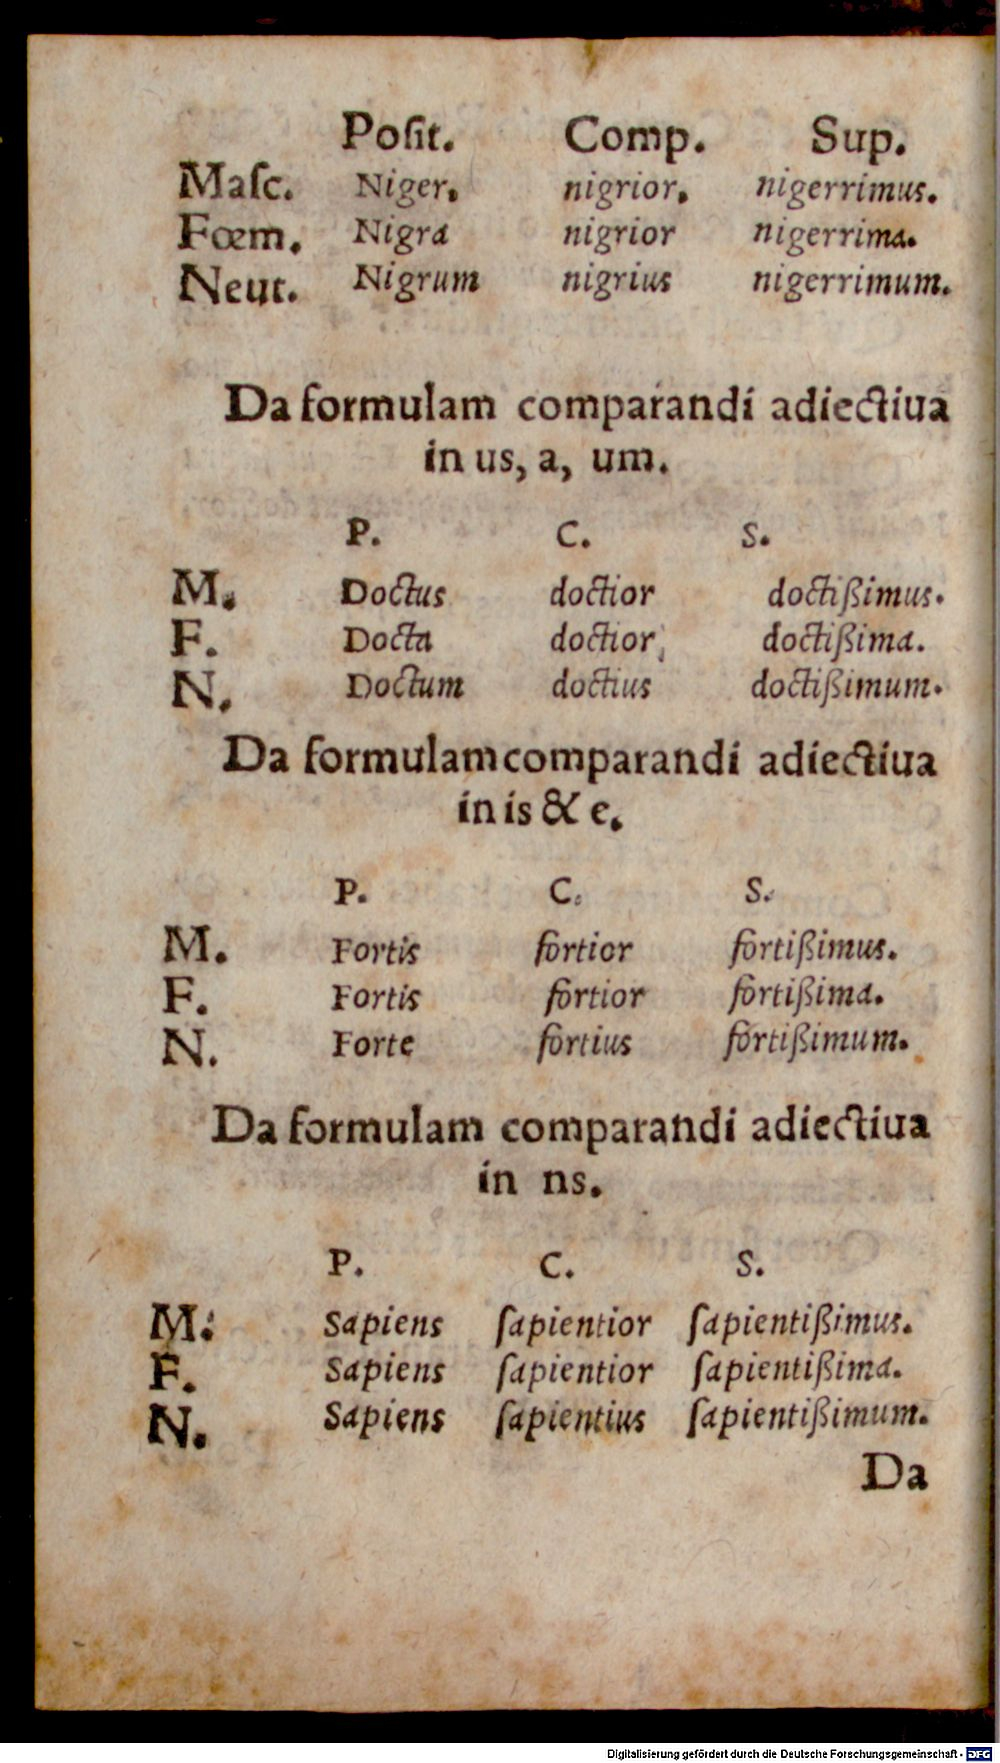 Poſit. Comp. Sup.
Maſc. Niger. nigrior. nigerrimus.
Fœm. Nigra nigrior nigerrima.
Neut. Nigrum nigrius nigerrimum.
Da formulam comparandi adiectiua
in us, a, um.
P. C. S.
M. Doctus doctior doctißimus.
F. Docta doctior, doctißima.
N. Doctum doctius doctißimum.
Da formulam comparandi adiectiua
in is & e.
P. C. S.
M. Fortis fortior fortißimus.
F. Fortis fortior fortißima.
N. Forte fortius fortißimum.
Da formulam comparandi adiectiua
in ns.
P. C. S.
M. Sapiens ſapientior ſapientißimus.
F. Sapiens ſapientior ſapientißima.
N. Sapiens ſapientius ſapientißimum.
Da
Digitalisierung gefördert durch die Deutsche Forschungsgemeinschaft - DFG